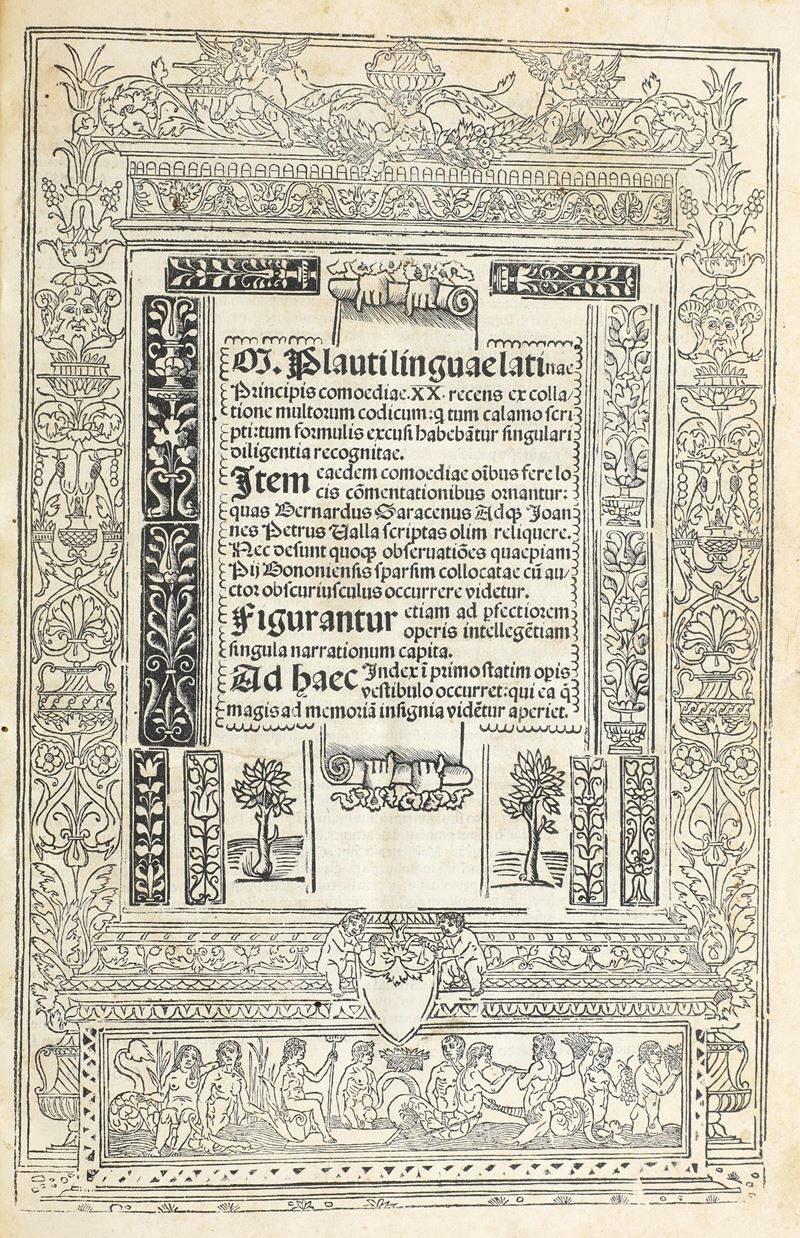 M. Plauti linguae latinae
Principis comoediae .XX. recens ex colla/
tione multorum codicum: q̃ tum calamo scri
pti: tum formulis excusi habebãtur singulari
diligentia recognitae.
Item eaedem comoediae oĩbus fere lo
cis cõmentationibus ornantur:
quas Bernardus Saracenus Adqꝫ Joan
nes Petrus Ualla scriptas olim reliquere.
Nec desunt quoqꝫ obseruatiões quaepiam
Pij Bononiensis sparsim collocatae cũ au/
ctor obscuriusculus occurrere videtur.
Figurantur etiam ad ꝑfectiorem
operis intellegẽtiam
singula narrationum capita.
Ad haec Index ĩ primo statim opis
vestibulo occurret: qui ea q̃
magis ad memoriã insignia vidẽtur aperiet.